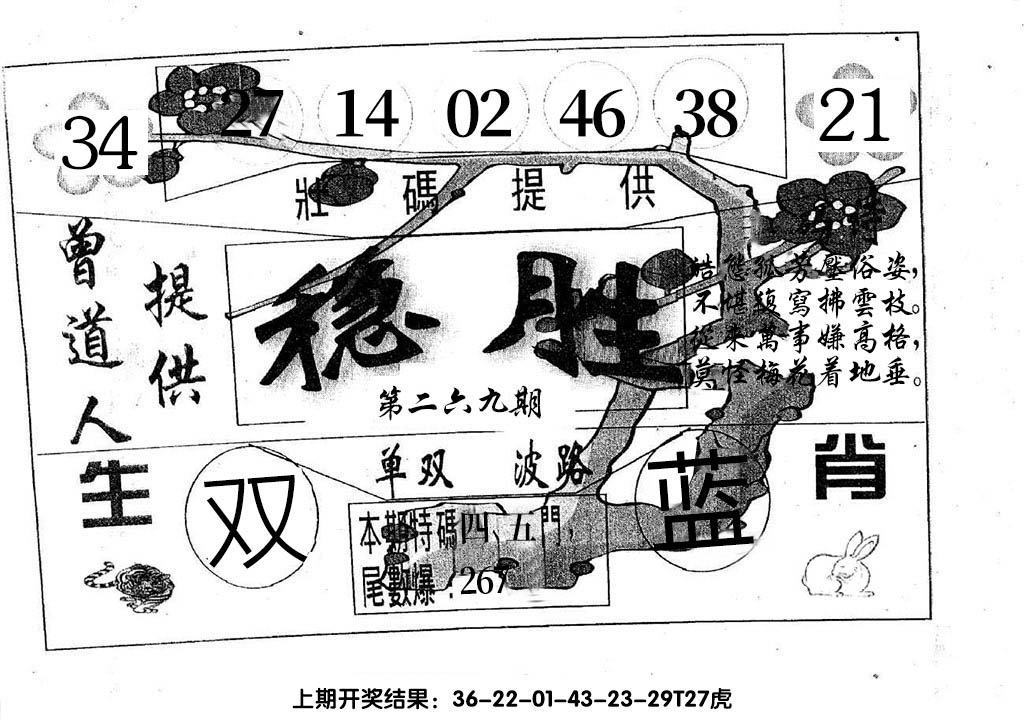 34 27 14 02 46 38 21
壯碼提供
曾道人
提供
稳胜
第二六九期
詩
皓態孤芳壓俗姿，
不堪複寫拂雲枝。
從來萬事嫌高格，
莫怪梅花着地垂。
生肖
单双 波路
双 蓝
本期特碼四、五門，
尾數爆：267
上期开奖结果：36-22-01-43-23-29T27虎